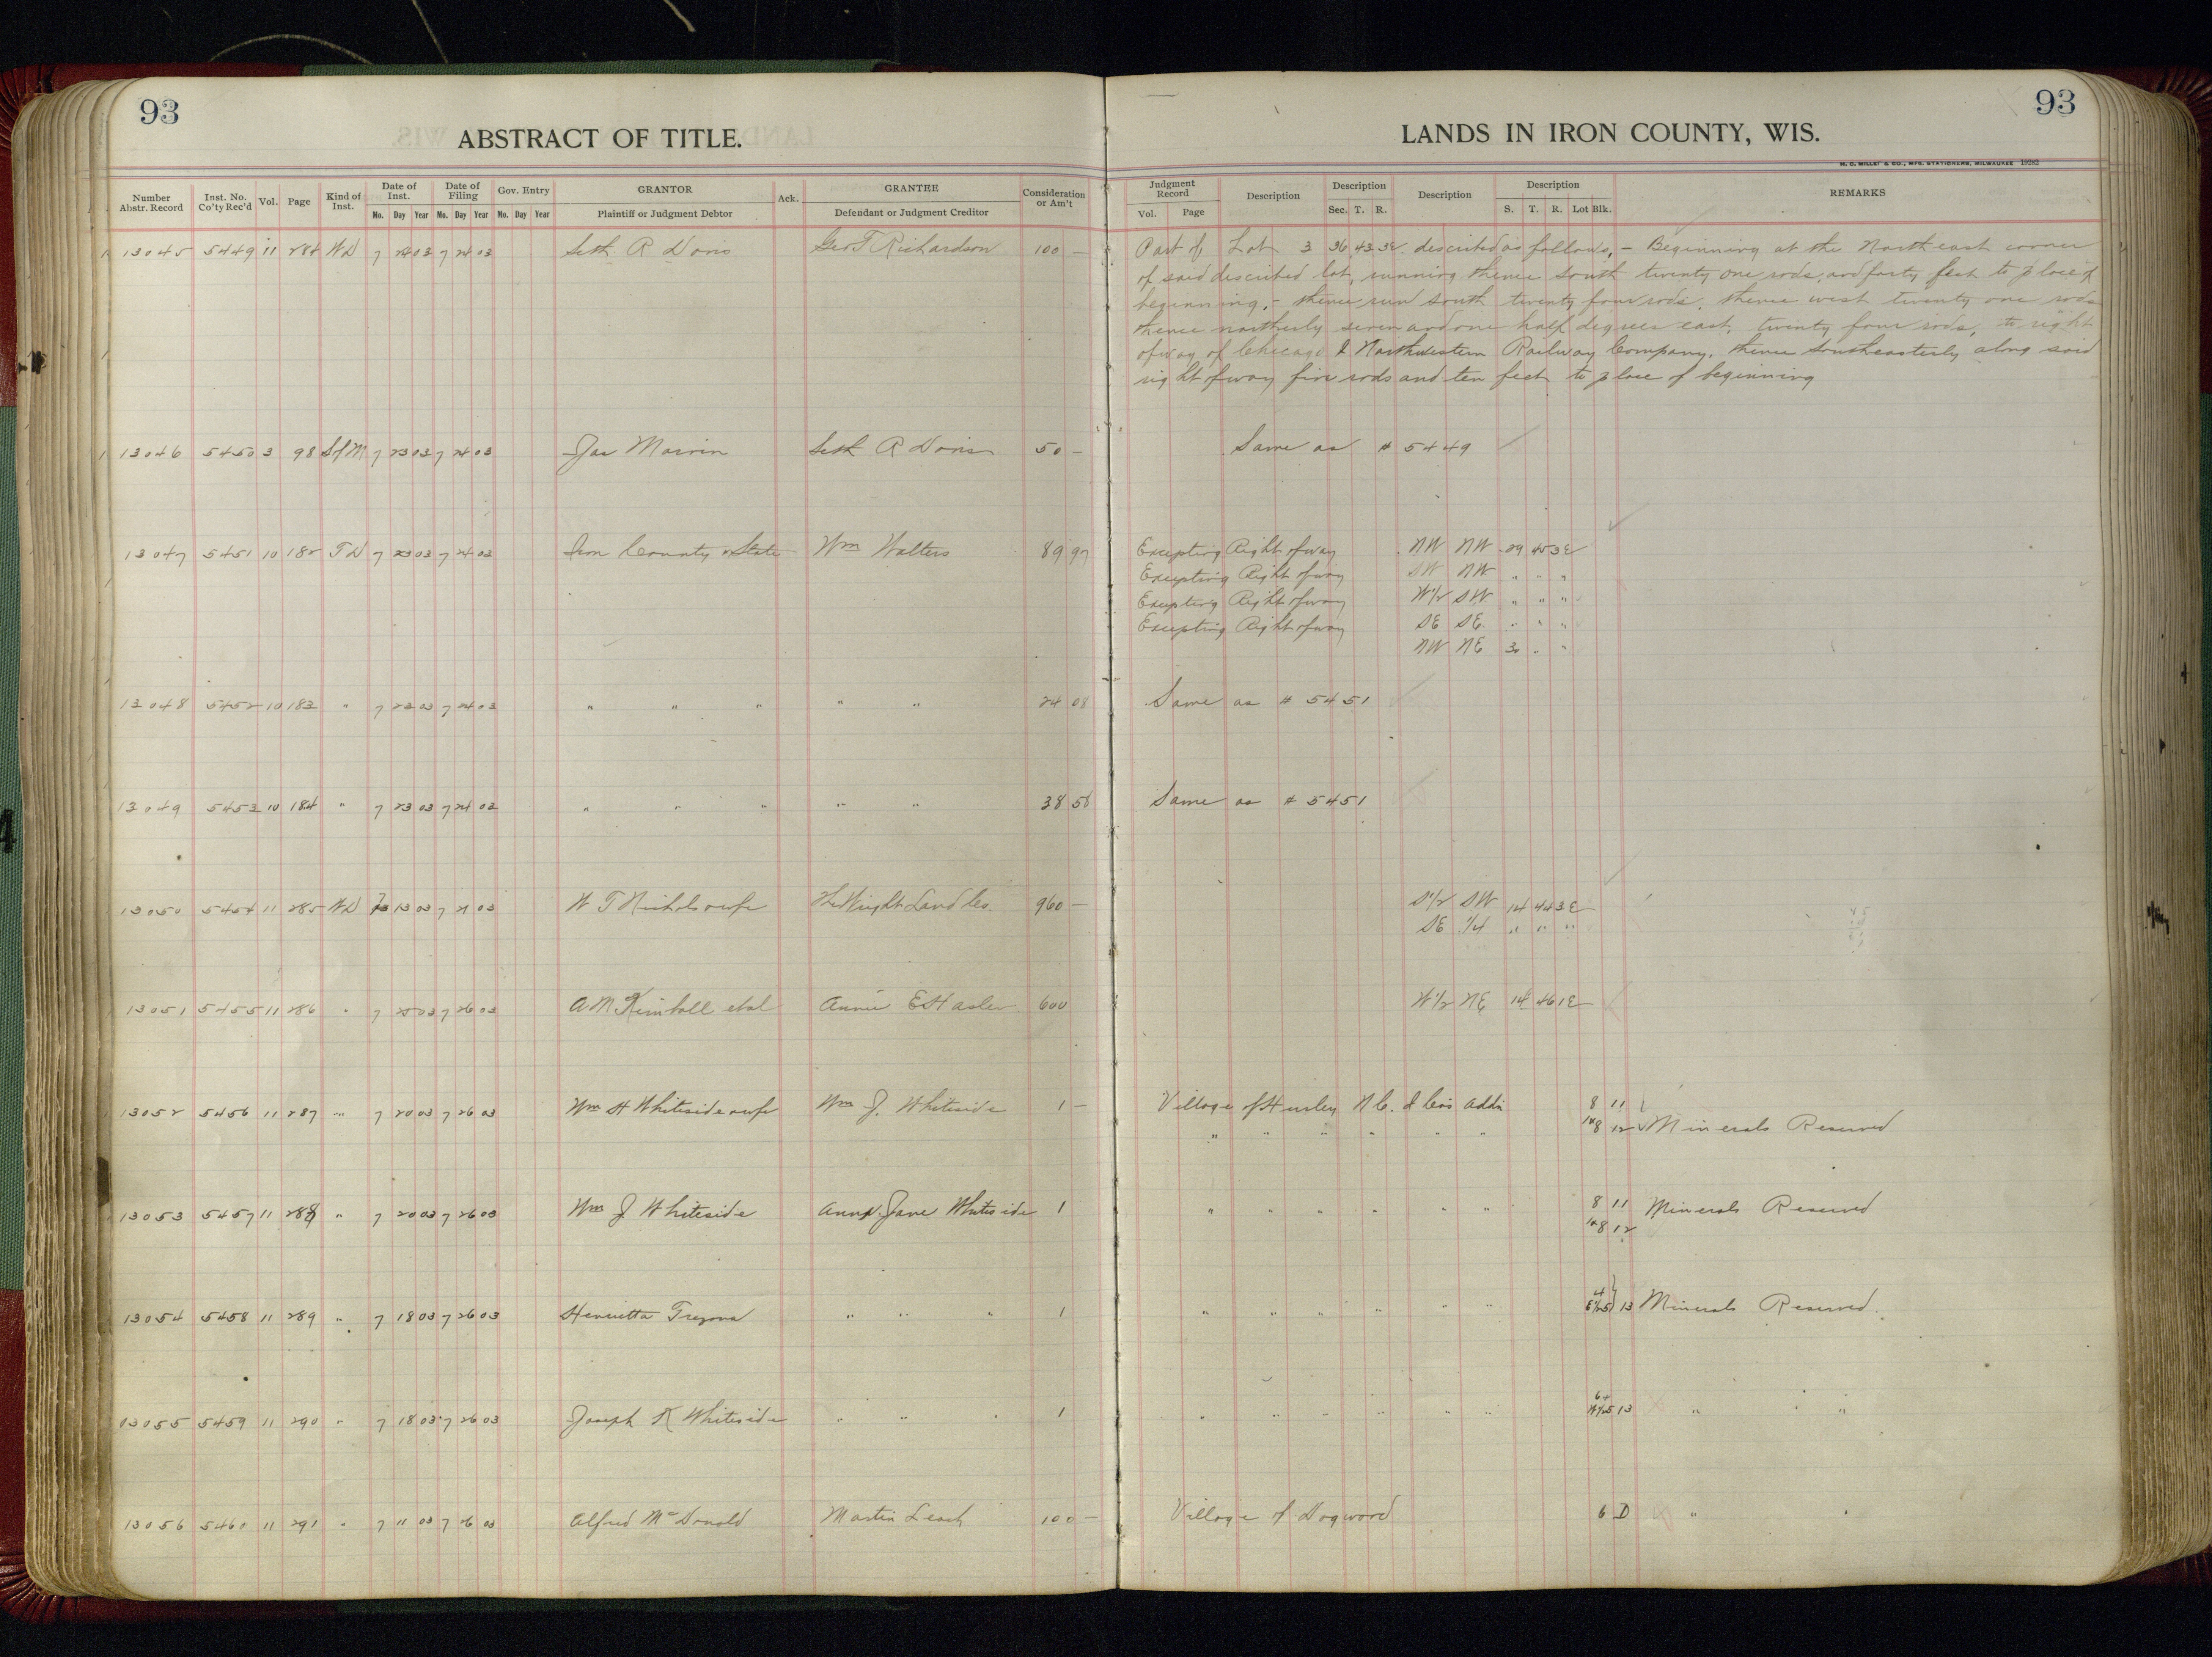 93
93
ABSTRACT OF TITLE.
LANDS IN IRON COUNTY, WIS.
H. C. MILLER & CO., MFG. STATIONERS, MILWAUKEE 19282
Number Abstr. Record | Inst. No. Co'ty Rec'd | Vol. | Page | Kind of Inst. | Date of Inst. Mo. Day Year | Date of Filing Mo. Day Year | Gov. Entry Mo. Day Year | GRANTOR Plaintiff or Judgment Debtor | Ack. | GRANTEE Defendant or Judgment Creditor | Consideration or Am't | Judgment Record Vol. Page | Description | Description Sec. T. R. | Description | Description S. T. R. Lot Blk. | REMARKS
13045 5449 11 284 WD 7 24 03 7 24 03 Seth R Davis Geo T Richardson 100 — Part of Lot 3 36 43 3E described as follows, – Beginning at the North east corner
of said described lot, running thence south twenty one rods, and forty feet to place of
beginning, – thence run south twenty four rods, thence west twenty one rods
thence northerly seven and one half degrees east, twenty four rods, to right
of way of Chicago & Northwestern Railway Company, thence southeasterly along said
right of way five rods and ten feet to place of beginning
13046 5450 3 98 S of M 7 23 03 7 24 03 Jas Marvin Seth R Davis 50 — Same as # 5449
13047 5451 10 182 TD 7 23 03 7 24 03 Iron County & State Wm Walters 89 97 Excepting Right of way NW NW 29 45 3E
Excepting Right of way SW NW " " "
Excepting Right of way W1/2 SW " " "
Excepting Right of way SE SE " " "
NW NE " "
13048 5452 10 183 " 7 23 03 7 24 03 " " " " " 24 08 Same as # 5451
13049 5453 10 184 " 7 23 03 7 24 03 " " " " " 38 58 Same as # 5451
13050 5454 11 285 WD 13 03 7 03 W T Nichols & wife The Wright Land Co. 960 — S1/2 SW 14 44 3E
SE 1/4 " " "
13051 5455 11 286 " 7 03 7 26 03 A M Kimball et al Annie E Hasler 600 W1/2 NE 14 46 1E
13052 5456 11 287 " 7 20 03 7 26 03 Wm H Whiteside & wife Wm J. Whiteside 1 — Village of Hurley N C. & Co's Addn 8 11
" " " " " " 8 12 Minerals Reserved
13053 5457 11 288 " 7 20 03 7 26 03 Wm J Whiteside Anna Jane Whiteside 1 " " " " " " 8 11 Minerals Reserved
8 12
13054 5458 11 289 " 7 18 03 7 26 03 Henrietta Trezona " " " 1 " " " " " " 4
E1/2 5 13 Minerals Reserved.
03055 5459 11 290 " 7 18 03 7 26 03 Joseph K Whiteside " " " 1 " " " " " " W1/2 5 13 " " "
13056 5460 11 291 " 7 11 03 7 26 03 Alfred McDonald Martin Leach 100 — Village of Dogwood 6 D " "